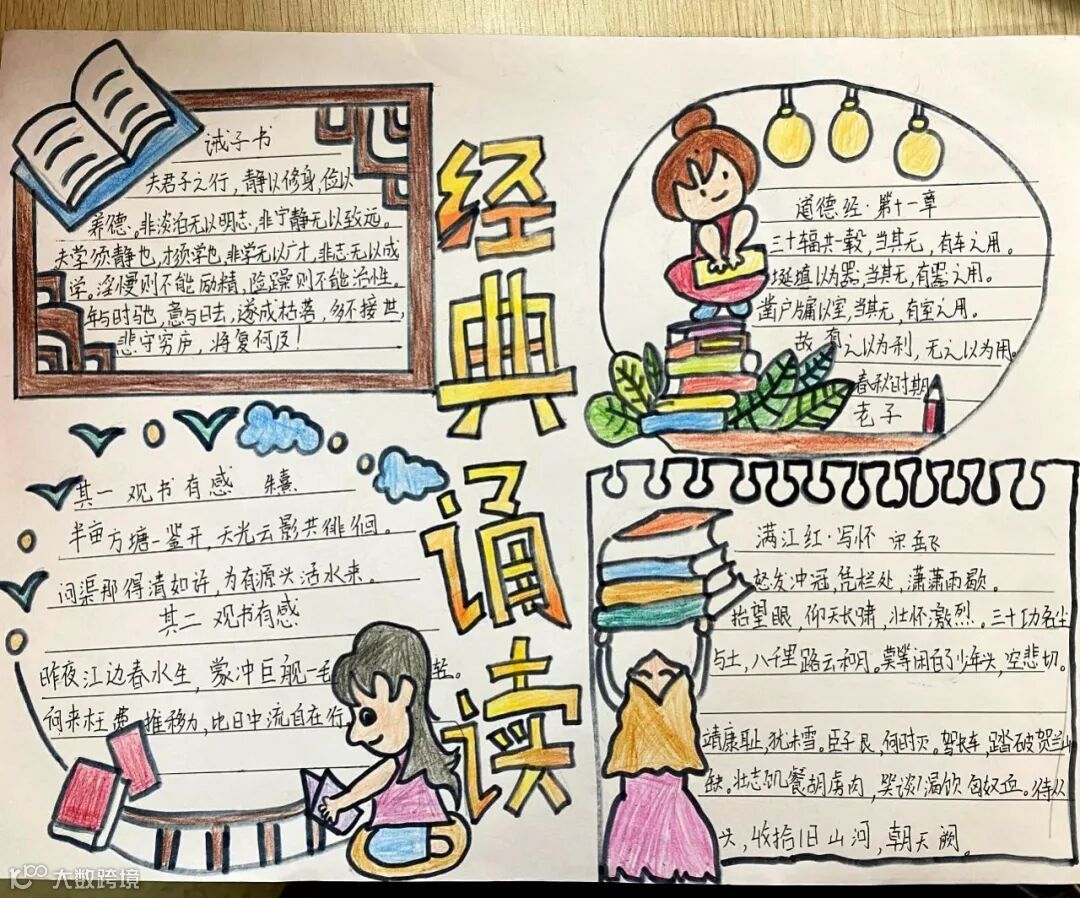 诫子书
夫君子之行，静以修身，位以
养德。非淡泊无以明志，非宁静无以致远。
夫学须静也，才须学也，非学无以广才，非志无以成
学。淫慢则不能励精，险躁则不能治性。
年与时驰，意与日去，遂成枯落，多不接世，
悲守穷庐，将复何及！
经典诵读
道德经·第十一章
三十辐共一毂，当其无，有车之用。
埏埴以为器，当其无，有器之用。
凿户牖以室，当其无，有室之用。
故有之以为利，无之以为用。
春秋时期
老子
其一 观书有感 朱熹
半亩方塘一鉴开，天光云影共徘徊。
问渠那得清如许，为有源头活水来。
其二 观书有感
昨夜江边春水生，蒙冲巨舰一毛轻。
何来枉费推移力，比日中流自在行
满江红·写怀 宋岳飞
怒发冲冠，凭栏处，潇潇雨歇。
抬望眼，仰天长啸，壮怀激烈。三十功名尘
与土，八千里路云和月。莫等闲白了少年头，空悲切。
靖康耻，犹未雪。臣子艮，何时灭。驾长车，踏破贺兰山
缺。壮志饥餐胡虏肉，笑谈渴饮匈奴血。待从
头，收拾旧山河，朝天阙。
大数跨境